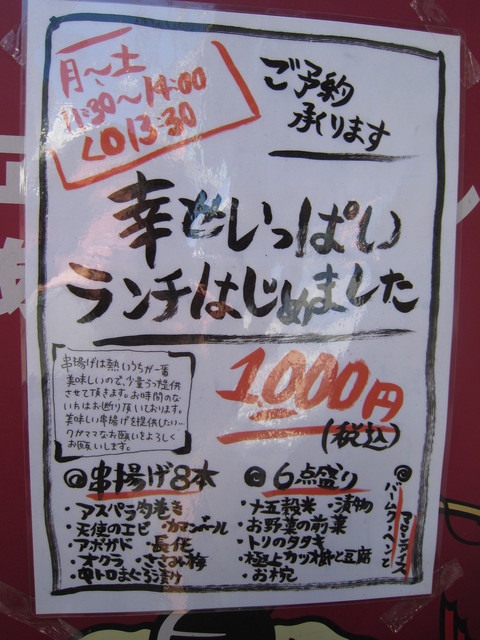 月〜土
11:30〜14:00
LO 13:30
ご予約
承ります
幸せいっぱい
ランチはじめました
串揚げは熱いうちが一番
美味しいので、少量ずつ提供
させて頂きます。お時間のな
い方はお断り頂いております。
美味しい串揚げを提供したい…
ワガママなお願いをよろしく
お願いします。
1000円
(税込)
串揚げ8本
・アスパラ肉巻き
・天使のエビ ・カマンベール
・アボガド ・長佗
・オクラ ・ささみ梅
・中トロまぐろ漬け
6点盛り
・十五穀米 ・漬物
・お野菜の前菜
・トリのタタキ
・極上カツオ節と豆腐
・お椀
バームクーヘンと
アイス